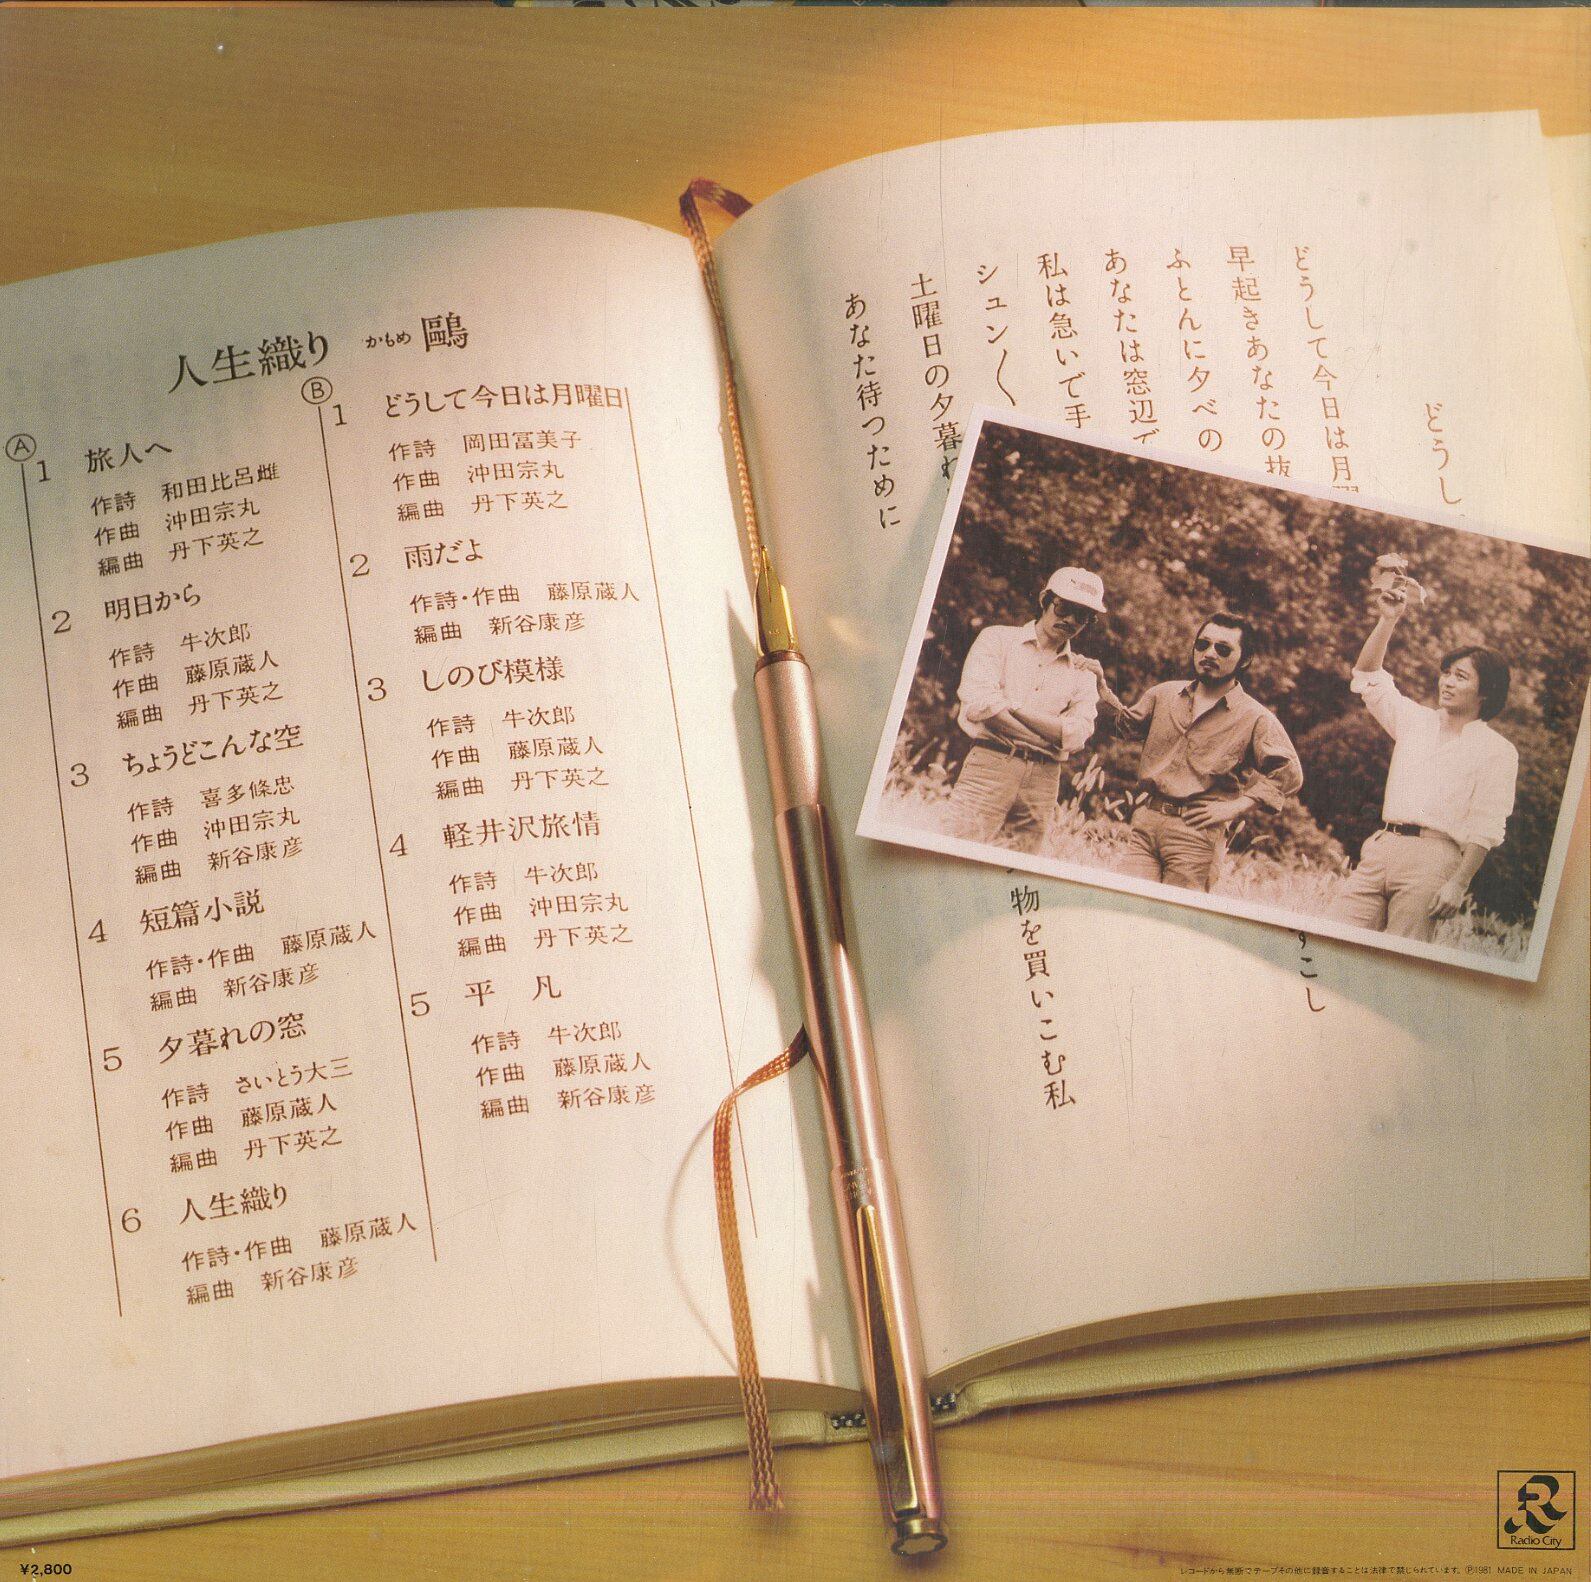 人生織り かもめ 鷗
Ⓐ
1 旅人へ
作詩 和田比呂雌
作曲 沖田宗丸
編曲 丹下英之
2 明日から
作詩 牛次郎
作曲 藤原蔵人
編曲 丹下英之
3 ちょうどこんな空
作詩 喜多條忠
作曲 沖田宗丸
編曲 新谷康彦
4 短篇小説
作詩・作曲 藤原蔵人
編曲 新谷康彦
5 夕暮れの窓
作詩 さいとう大三
作曲 藤原蔵人
編曲 丹下英之
6 人生織り
作詩・作曲 藤原蔵人
編曲 新谷康彦
Ⓑ
1 どうして今日は月曜日
作詩 岡田冨美子
作曲 沖田宗丸
編曲 丹下英之
2 雨だよ
作詩・作曲 藤原蔵人
編曲 新谷康彦
3 しのび模様
作詩 牛次郎
作曲 藤原蔵人
編曲 丹下英之
4 軽井沢旅情
作詩 牛次郎
作曲 沖田宗丸
編曲 丹下英之
5 平 凡
作詩 牛次郎
作曲 藤原蔵人
編曲 新谷康彦
どうし
どうして今日は月
早起きあなたの抜
すこし
ふとんに夕べの
あなたは窓辺で
私は急いで手
物を買いこむ私
シュン〱
土曜日の夕暮れ
あなた待つために
R
Radio City
¥2,800
レコードから無断でテープその他に録音することは法律で禁じられています。Ⓟ1981 MADE IN JAPAN